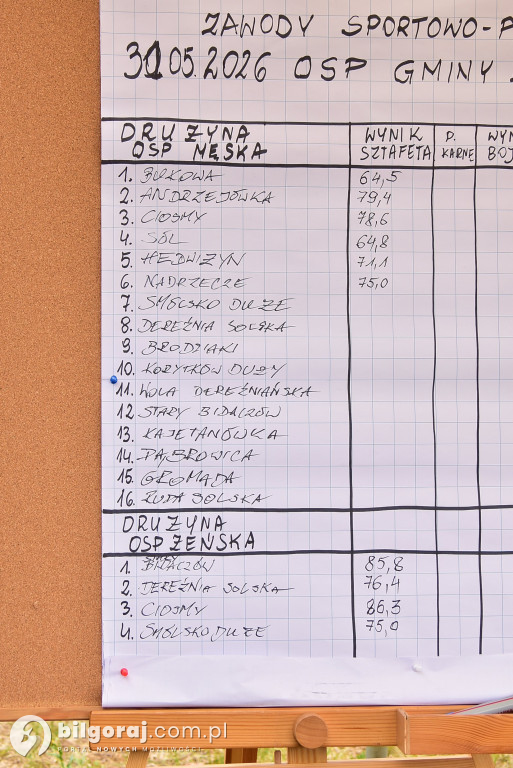 ZAWODY SPORTOWO-P
31.05.2026 OSP GMINY
DRUŻYNA OSP MĘSKA WYNIK SZTAFETA P. KARNE WYN BOJ
1. BUKOWA 64,5
2. ANDRZEJÓWKA 79,4
3. CIOSMY 78,6
4. SÓL 64,8
5. HEDWIŻYN 71,1
6. NADRZECZE 75,0
7. SMÓLSKO DUŻE
8. DEREŹNIA SOLSKA
9. BRODZIAKI
10. KORYTKÓW DUŻY
11. WOLA DEREŹNIAŃSKA
12. STARY BIDACZÓW
13. KAJETANÓWKA
14. DĄBROWICA
15. GROMADA
16. RUDA SOLSKA
DRUŻYNA
OSP ŻEŃSKA
1. STARY BIDACZÓW 85,8
2. DEREŹNIA SOLSKA 76,4
3. CIOSMY 86,3
4. SMÓLSKO DUŻE 75,0
bilgoraj.com.pl
PORTAL NOWYCH MOŻLIWOŚCI